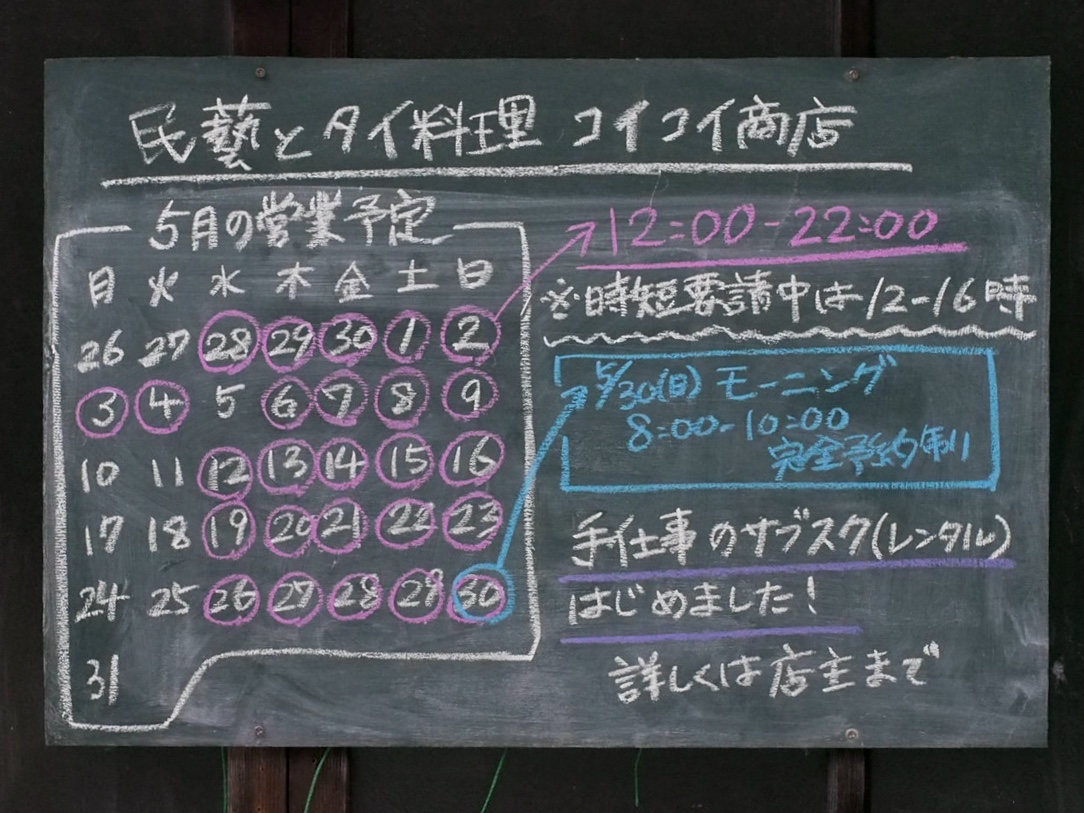 民藝とタイ料理 コイコイ商店
5月の営業予定
月 火 水 木 金 土 日
26 27 28 29 30 1 2
3 4 5 6 7 8 9
10 11 12 13 14 15 16
17 18 19 20 21 22 23
24 25 26 27 28 29 30
31
12:00-22:00
※時短要請中は12-16時
5/30(日) モーニング
8:00-10:00
完全予約制
手仕事のサブスク(レンタル)
はじめました!
詳しくは店主まで